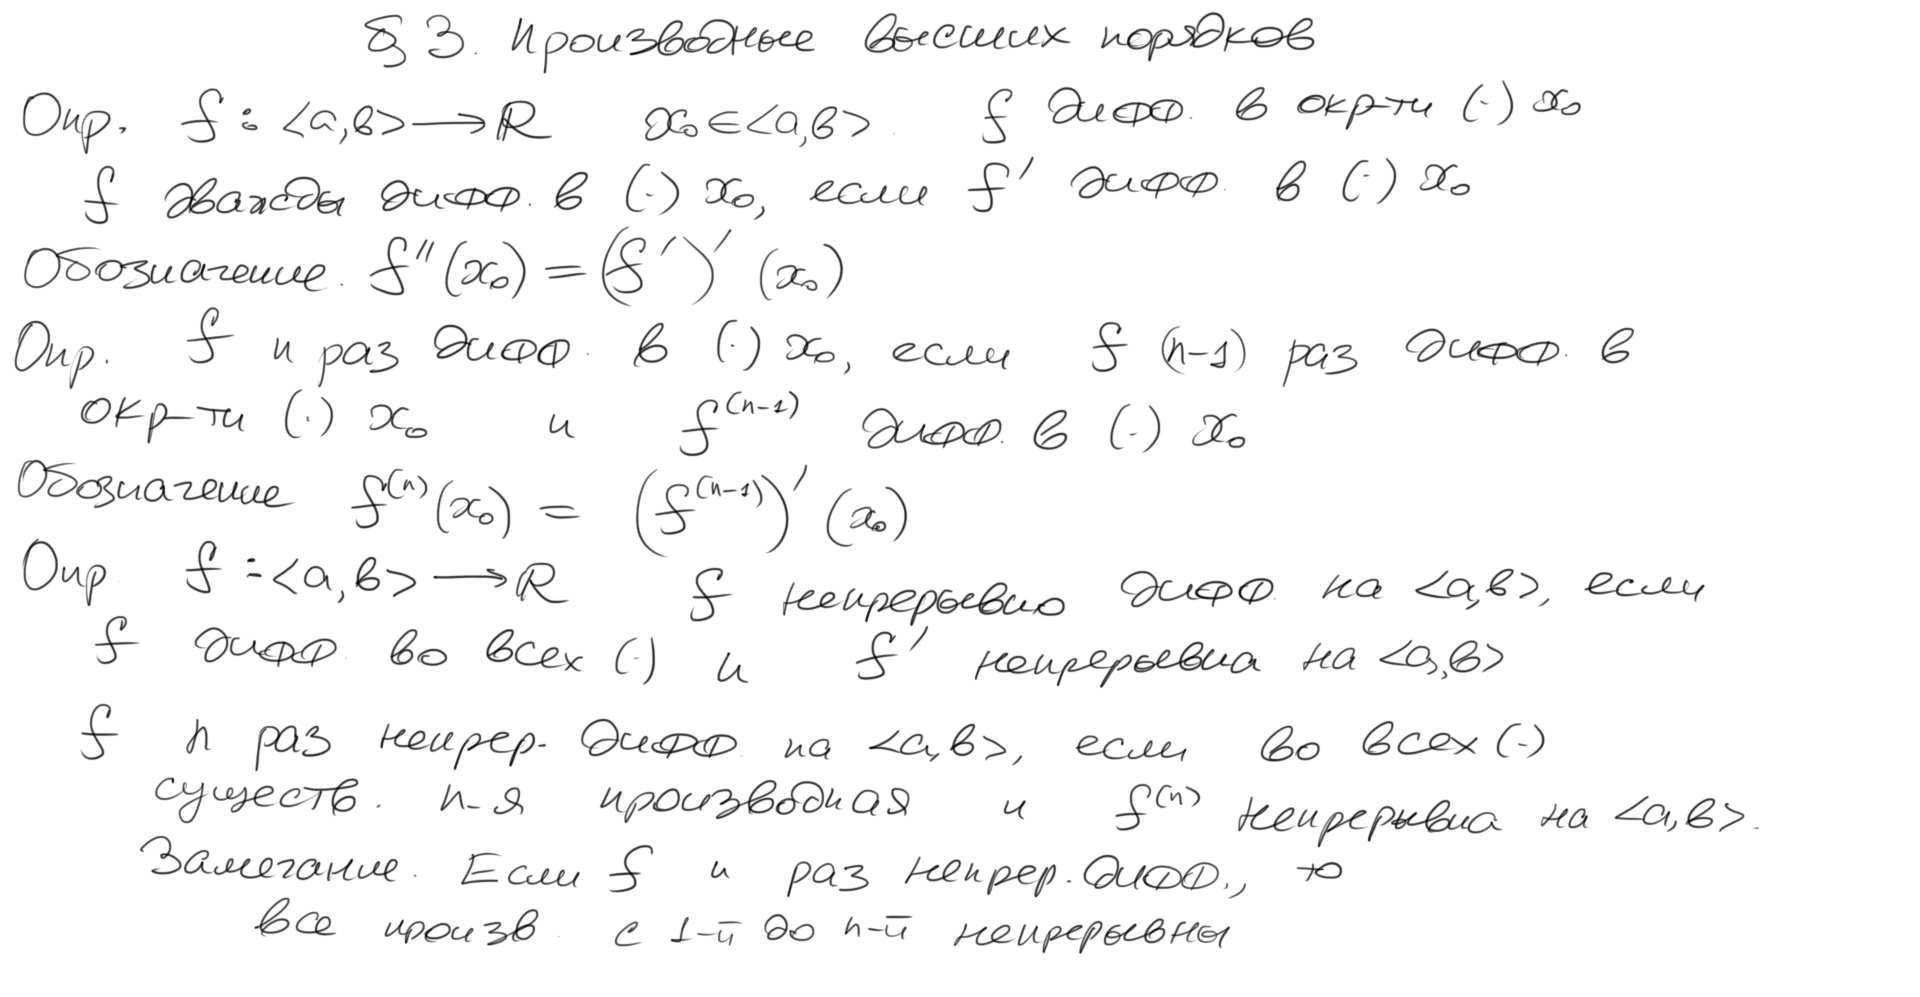 § 3. Производные высших порядков
Опр. f : <a,b> ⟶ ℝ x₀ ∈ <a,b> f дифф. в окр-ти (·) x₀
f дважды дифф. в (·) x₀, если f′ дифф. в (·) x₀
Обозначение. f″(x₀) = (f′)′ (x₀)
Опр. f n раз дифф. в (·) x₀, если f (n-1) раз дифф. в
окр-ти (·) x₀ и f⁽ⁿ⁻¹⁾ дифф. в (·) x₀
Обозначение f⁽ⁿ⁾(x₀) = (f⁽ⁿ⁻¹⁾)′ (x₀)
Опр f : <a,b> ⟶ ℝ f непрерывно дифф. на <a,b>, если
f дифф. во всех (·) и f′ непрерывна на <a,b>
f n раз непрер. дифф. на <a,b>, если во всех (·)
существ. n-я производная и f⁽ⁿ⁾ непрерывна на <a,b>.
Замечание. Если f n раз непрер. дифф., то
все произв. с 1-й до n-й непрерывны